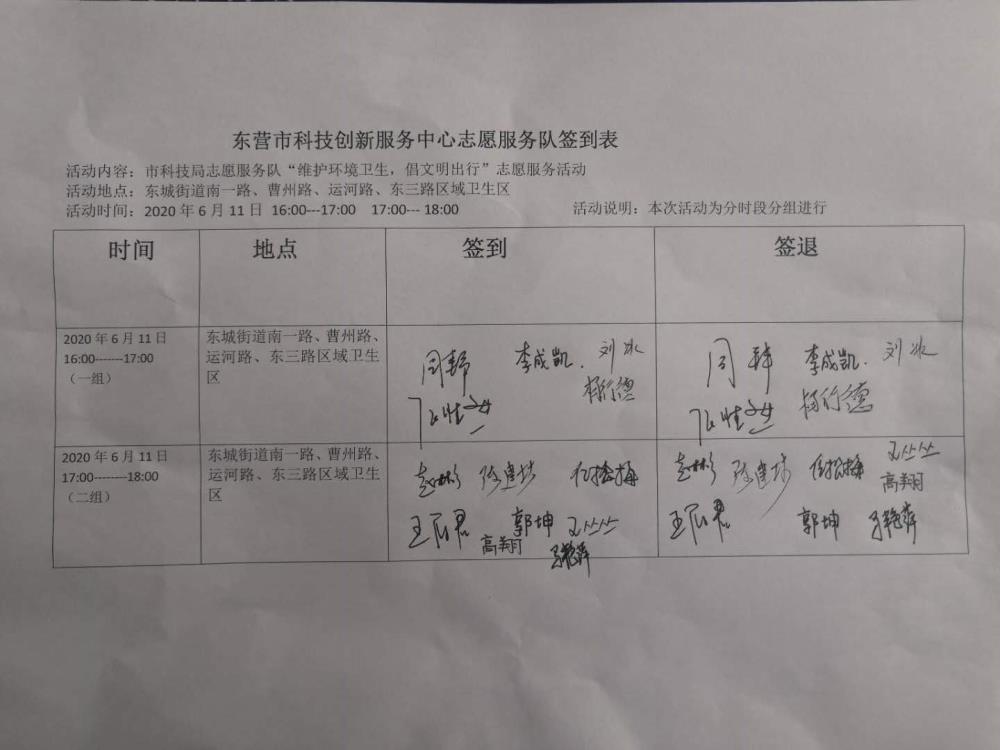 东营市科技创新服务中心志愿服务队签到表
活动内容：市科技局志愿服务队“维护环境卫生，倡文明出行”志愿服务活动
活动地点：东城街道南一路、曹州路、运河路、东三路区域卫生区
活动时间：2020年6月11日 16:00---17:00 17:00--- 18:00 活动说明：本次活动为分时段分组进行
时间 地点 签到 签退
2020年6月11日
16:00-------17:00
（一组）
东城街道南一路、曹州路、
运河路、东三路区域卫生
区
李成凯. 刘冰
杨行德
李成凯. 刘冰
杨行德
2020年6月11日
17:00--------18:00
（二组）
东城街道南一路、曹州路、
运河路、东三路区域卫生
区
赵彬
郭坤 王丛丛
高翔
赵彬 王丛丛
高翔
郭坤